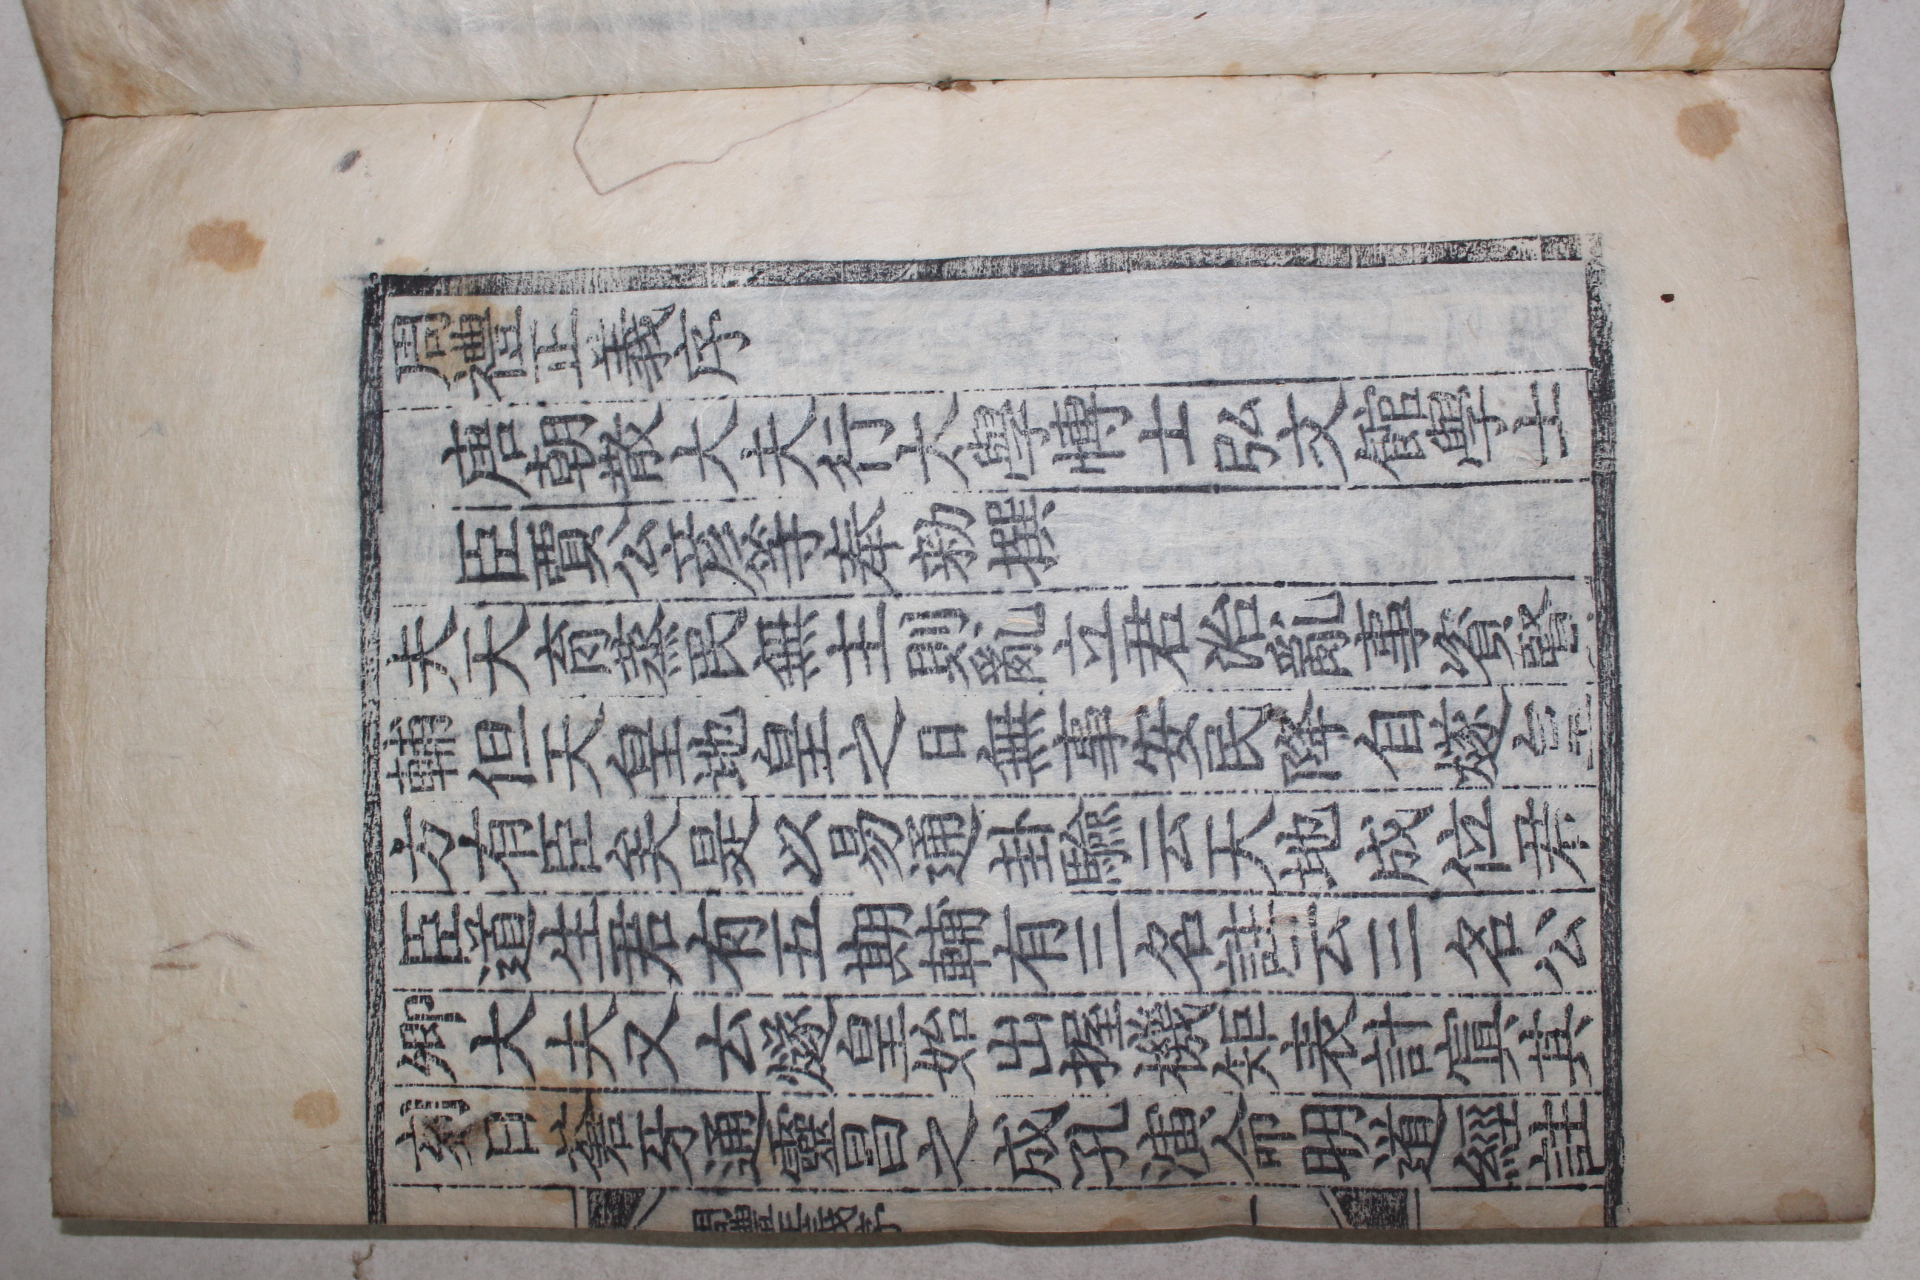 周禮正義序
唐朝散大夫行太學博士弘文館學士
臣賈公彦等奉勑撰
夫天育蒸民無主則亂立君治亂事資賢
輔但天皇地皇之日無事安民降自燧皇
方有臣矣是以易通卦驗云天地成位君
臣道生君有五期輔有三名註云三名公
卿大夫又云燧皇始出握機矩表計寘其
刻曰蒼牙通靈昌之成孔演命明道經註
周禮正義序
一